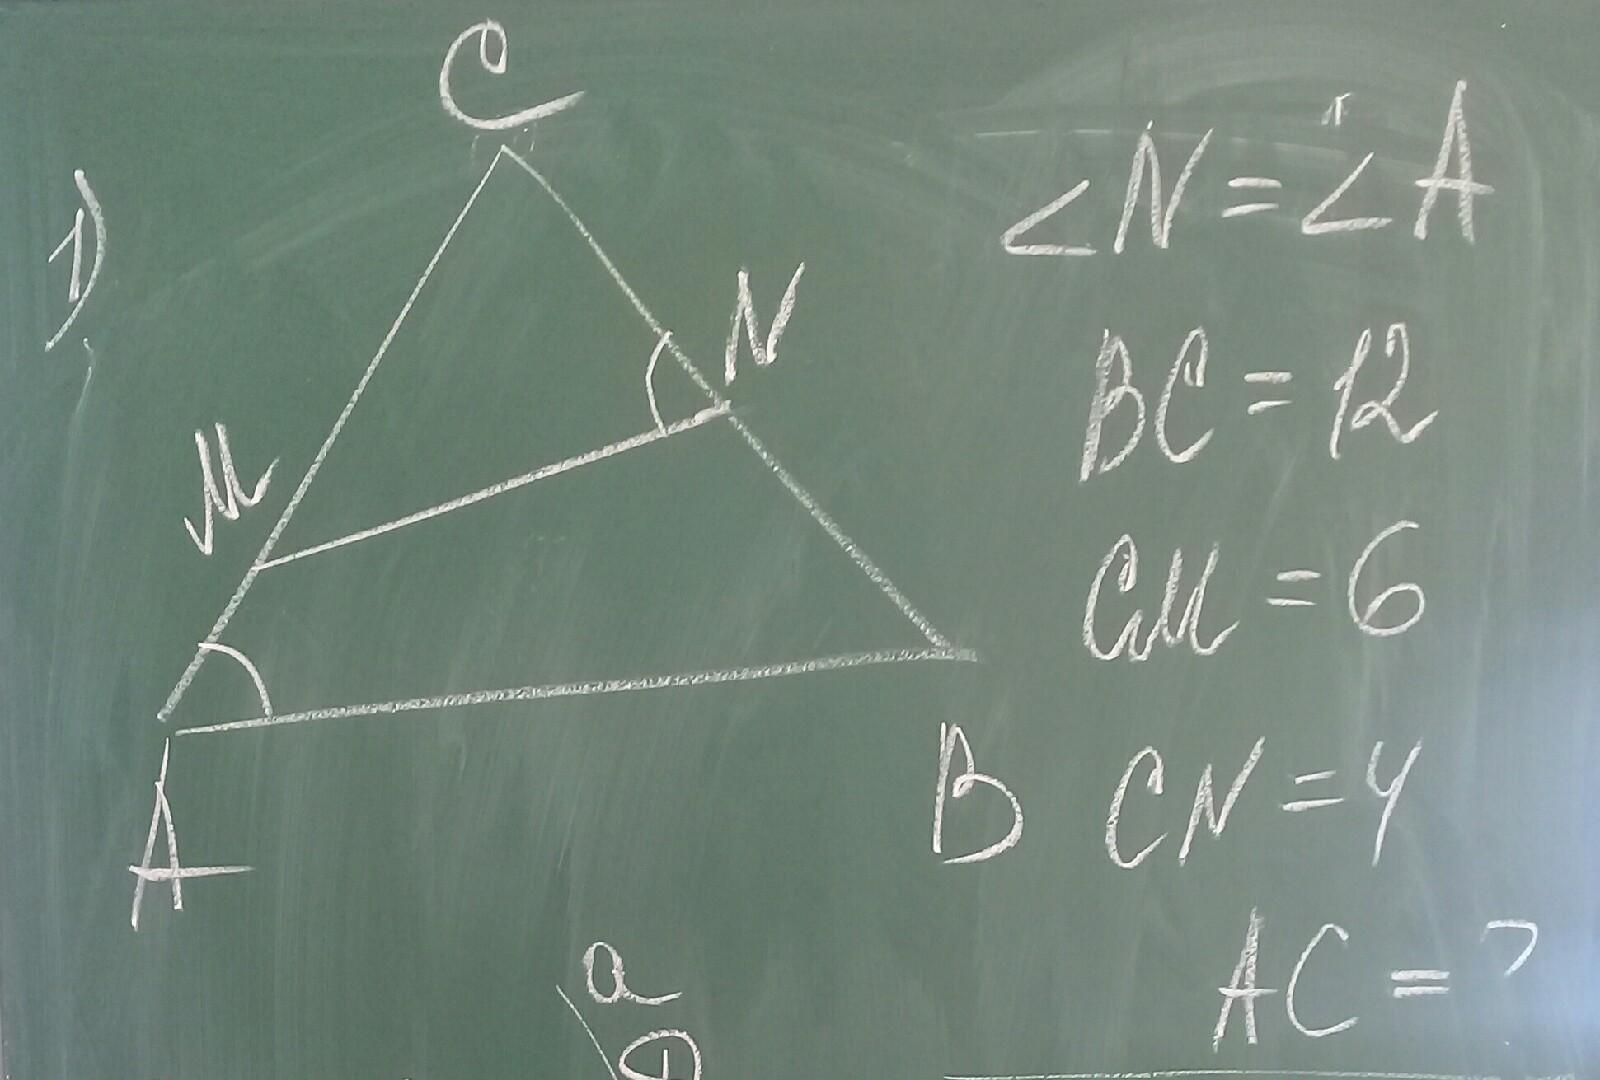 1)
C
M
N
A
B
∠N = ∠A
BC = 12
CM = 6
CN = 4
AC = ?
a